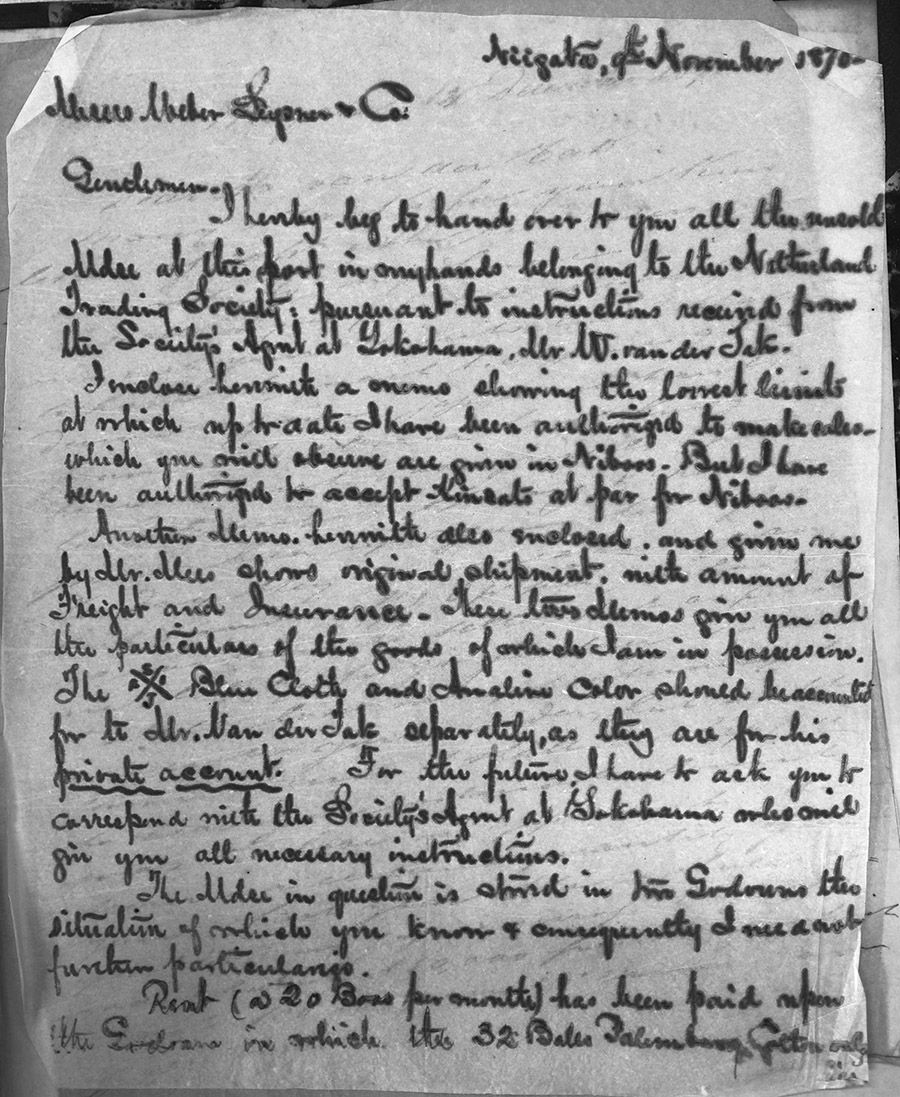 Niigata, 9th November 1870-
Messrs Weber Leysner & Co:
Gentlemen-
I hereby beg to hand over to you all the unsold
Mdse at this port in my hands belonging to the Netherland
Trading Society; pursuant to instructions received from
the Society's Agent at Yokohama, Mr W. van der Tak.
I enclose herewith a memo showing the lowest limits
at which up to date I have been authorized to make sales-
which you will observe are given in Niboos. But I have
been authorized to accept Kinsats at par for Niboos-
Another Memo. herewith also enclosed, and given me
by Mr. Mees shows original shipment, with amount of
Freight and Insurance- These two Memos give you all
the particulars of the goods of which I am in possession.
The Blue Cloth and Analine Color should be accounted
for to Mr. Van der Tak separately, as they are for his
private account. For the future, I have to ask you to
correspond with the Society's Agent at Yokohama who will
give you all necessary instructions.
The Mdse in question is stored in two Godowns the
situation of which you know & consequently I need not
further particularize.
Rent (@ 20 Boos per month) has been paid upon
the Godown in which the 32 Bales Palembang Cotton only